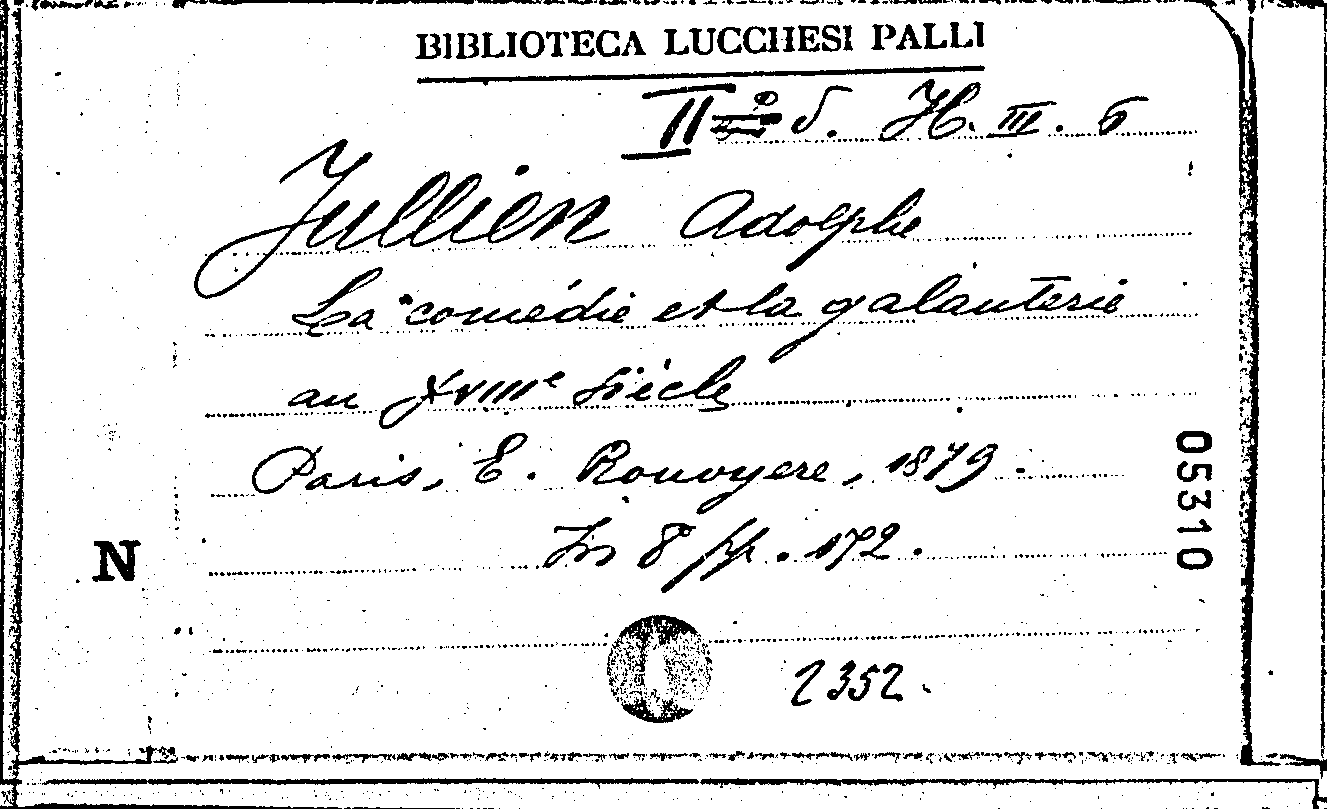 BIBLIOTECA LUCCHESI PALLI
II δ. H. III. 6
Jullien Adolphe
La comédie et la galanterie
au XVIIIe siècle
Paris, E. Rouvyere, 1879.
In 8 pp. 172.
N
05310
2352.